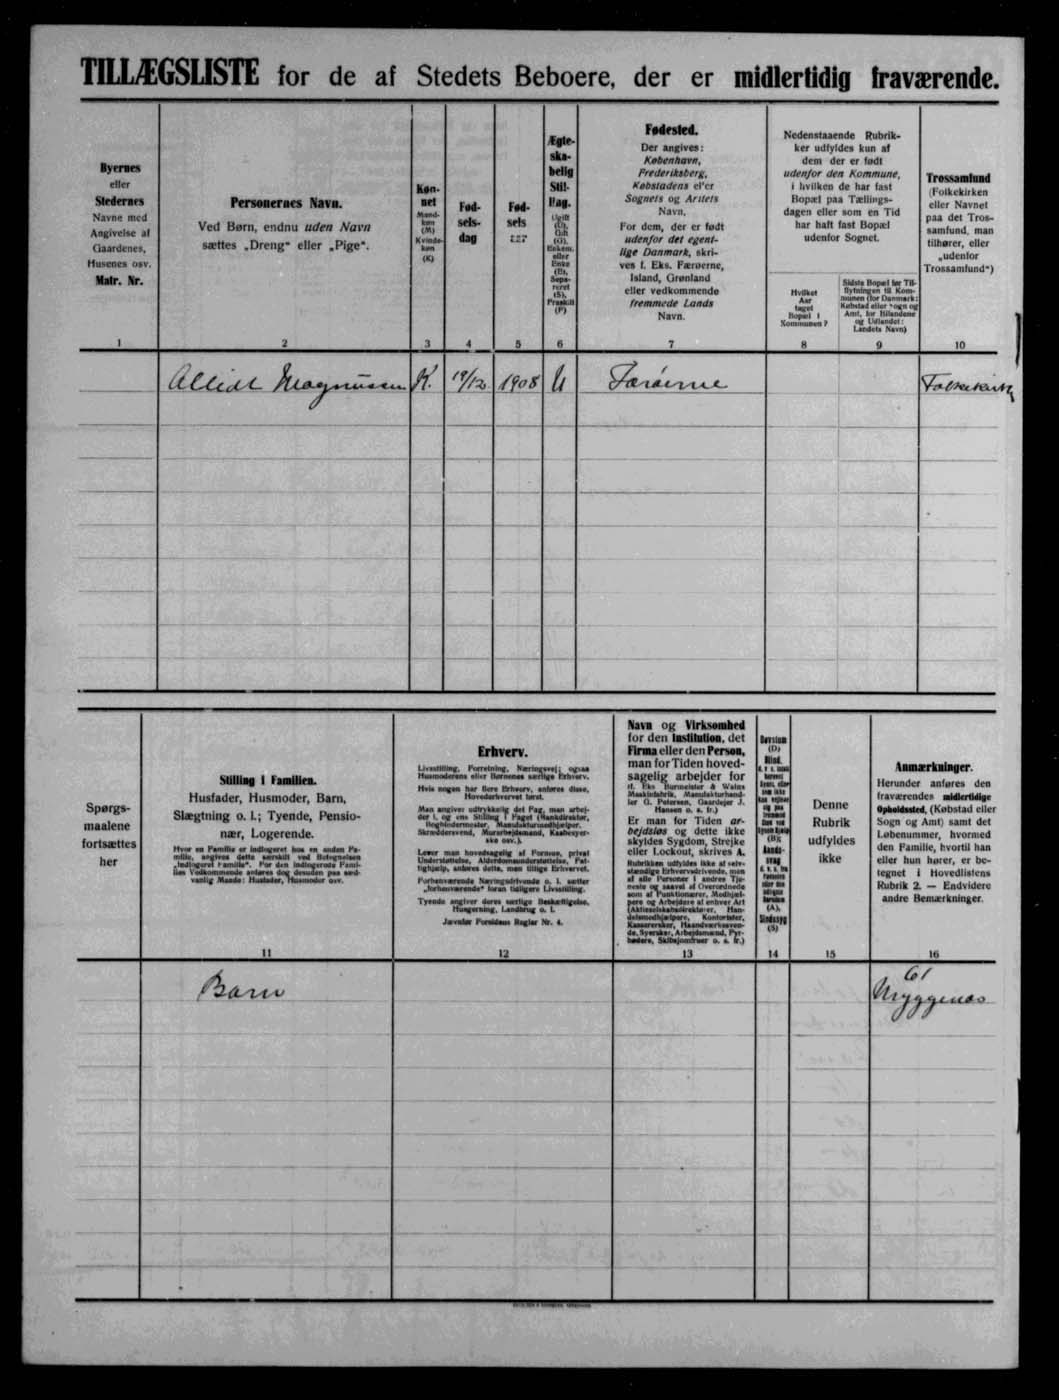 TILLÆGSLISTE for de af Stedets Beboere, der er midlertidig fraværende.
Byernes
eller
Stedernes
Navne med
Angivelse af
Gaardenes,
Husenes osv.
Matr. Nr.
1
Personernes Navn.
Ved Børn, endnu uden Navn
sættes „Dreng“ eller „Pige“.
2
Køn-
net
Mand-
køn
(M)
Kvinde-
køn
(K)
3
Fød-
sels-
dag
4
Fød-
sels
5
Ægte-
ska-
belig
Stil-
ling.
Ugift
(U),
Gift
(G),
Enkem.
eller
Enke
(E),
Sepa-
reret
(S),
Fraskilt
(F)
6
Fødested.
Der angives:
København,
Frederiksberg,
Købstadens eller
Sognets og Amtets
Navn,
For dem, der er født
udenfor det egent-
lige Danmark, skri-
ves f. Eks. Færøerne,
Island, Grønland
eller vedkommende
fremmede Lands
Navn.
7
Nedenstaaende Rubrik-
ker udfyldes kun af
dem der er født
udenfor den Kommune,
i hvilken de har fast
Bopæl paa Tællings-
dagen eller som en Tid
har haft fast Bopæl
udenfor Sognet.
Hvilket
Aar
taget
Bopæl i
Kommunen?
8
Sidste Bopæl før Til-
flytningen til Kom-
munen (for Danmark:
Købstad eller Sogn og
Amt, for Bilandene
og Udlandet:
Landets Navn)
9
Trossamfund
(Folkekirken
eller Navnet
paa det Tros-
samfund, man
tilhører, eller
„udenfor
Trossamfund“)
10
Magnussen K. 19/12 1908 U Færøerne Folkekirk
Spørgs-
maalene
fortsættes
her
Stilling i Familien.
Husfader, Husmoder, Barn,
Slægtning o. l.; Tyende, Pensio-
nær, Logerende.
Hvor en Familie er indlogeret hos en anden Fa-
milie, angives dette særskilt ved Betegnelsen
„indlogeret Familie“. For den indlogerede Fami-
lies Vedkommende anføres dog desuden paa sæd-
vanlig Maade: Husfader, Husmoder osv.
11
Erhverv.
Livsstilling, Forretning, Næringsvej; ogsaa
Husmoderens eller Børnenes særlige Erhverv.
Hvis nogen har flere Erhverv, anføres disse,
Hovederhvervet først.
Man angiver udtrykkelig det Fag, man arbej-
der i, og ens Stilling i Faget (Bankdirektør,
Bogbindermester, Manufakturmedhjælper,
Skræddersvend, Murarbejdsmand, Kaabesyer-
ske osv.).
Lever man hovedsagelig af Formue, privat
Understøttelse, Alderdomsunderstøttelse, Fat-
tighjælp, anføres dette, men tillige Erhvervet.
Forhenværende Næringsdrivende o. l. sætter
„forhenværende“ foran tidligere Livsstilling.
Tyende angiver deres særlige Beskæftigelse,
Husgerning, Landbrug o. l.
Jævnfør Forsidens Regler Nr. 4.
12
Navn og Virksomhed
for den Institution, det
Firma eller den Person,
man for Tiden hoved-
sagelig arbejder for
(f. Eks Burmeister & Wains
Maskinfabrik, Manufakturhand-
ler G. Petersen, Gaardejer J.
Hansen o. s. fr.)
Er man for Tiden ar-
bejdsløs og dette ikke
skyldes Sygdom, Strejke
eller Lockout, skrives A.
Rubrikken udfyldes ikke af selv-
stændige Erhvervsdrivende, men
af alle Personer i andres Tje-
neste og saavel af Overordnede
som af Funktionærer, Medhjæl-
pere og Arbejdere af enhver Art
(Aktieselskabsdirektører, Han-
delsmedhjælpere, Kontorister,
Kassererasker, Haandværkssven-
de, Syersker, Arbejdsmænd, Fyr-
bødere, Skibsjomfruer o. s. fr.)
13
Døvstum
(D)
Blind,
(B);
Aands-
svag
(A),
Sindssyg
(S)
14
Denne
Rubrik
udfyldes
ikke
15
Anmærkninger.
Herunder anføres den
fraværendes midlertidige
Opholdssted, (Købstad eller
Sogn og Amt) samt det
Løbenummer, hvormed
den Familie, hvortil han
eller hun hører, er be-
tegnet i Hovedlistens
Rubrik 2. — Endvidere
andre Bemærkninger.
16
Barn
61
Myggenæs